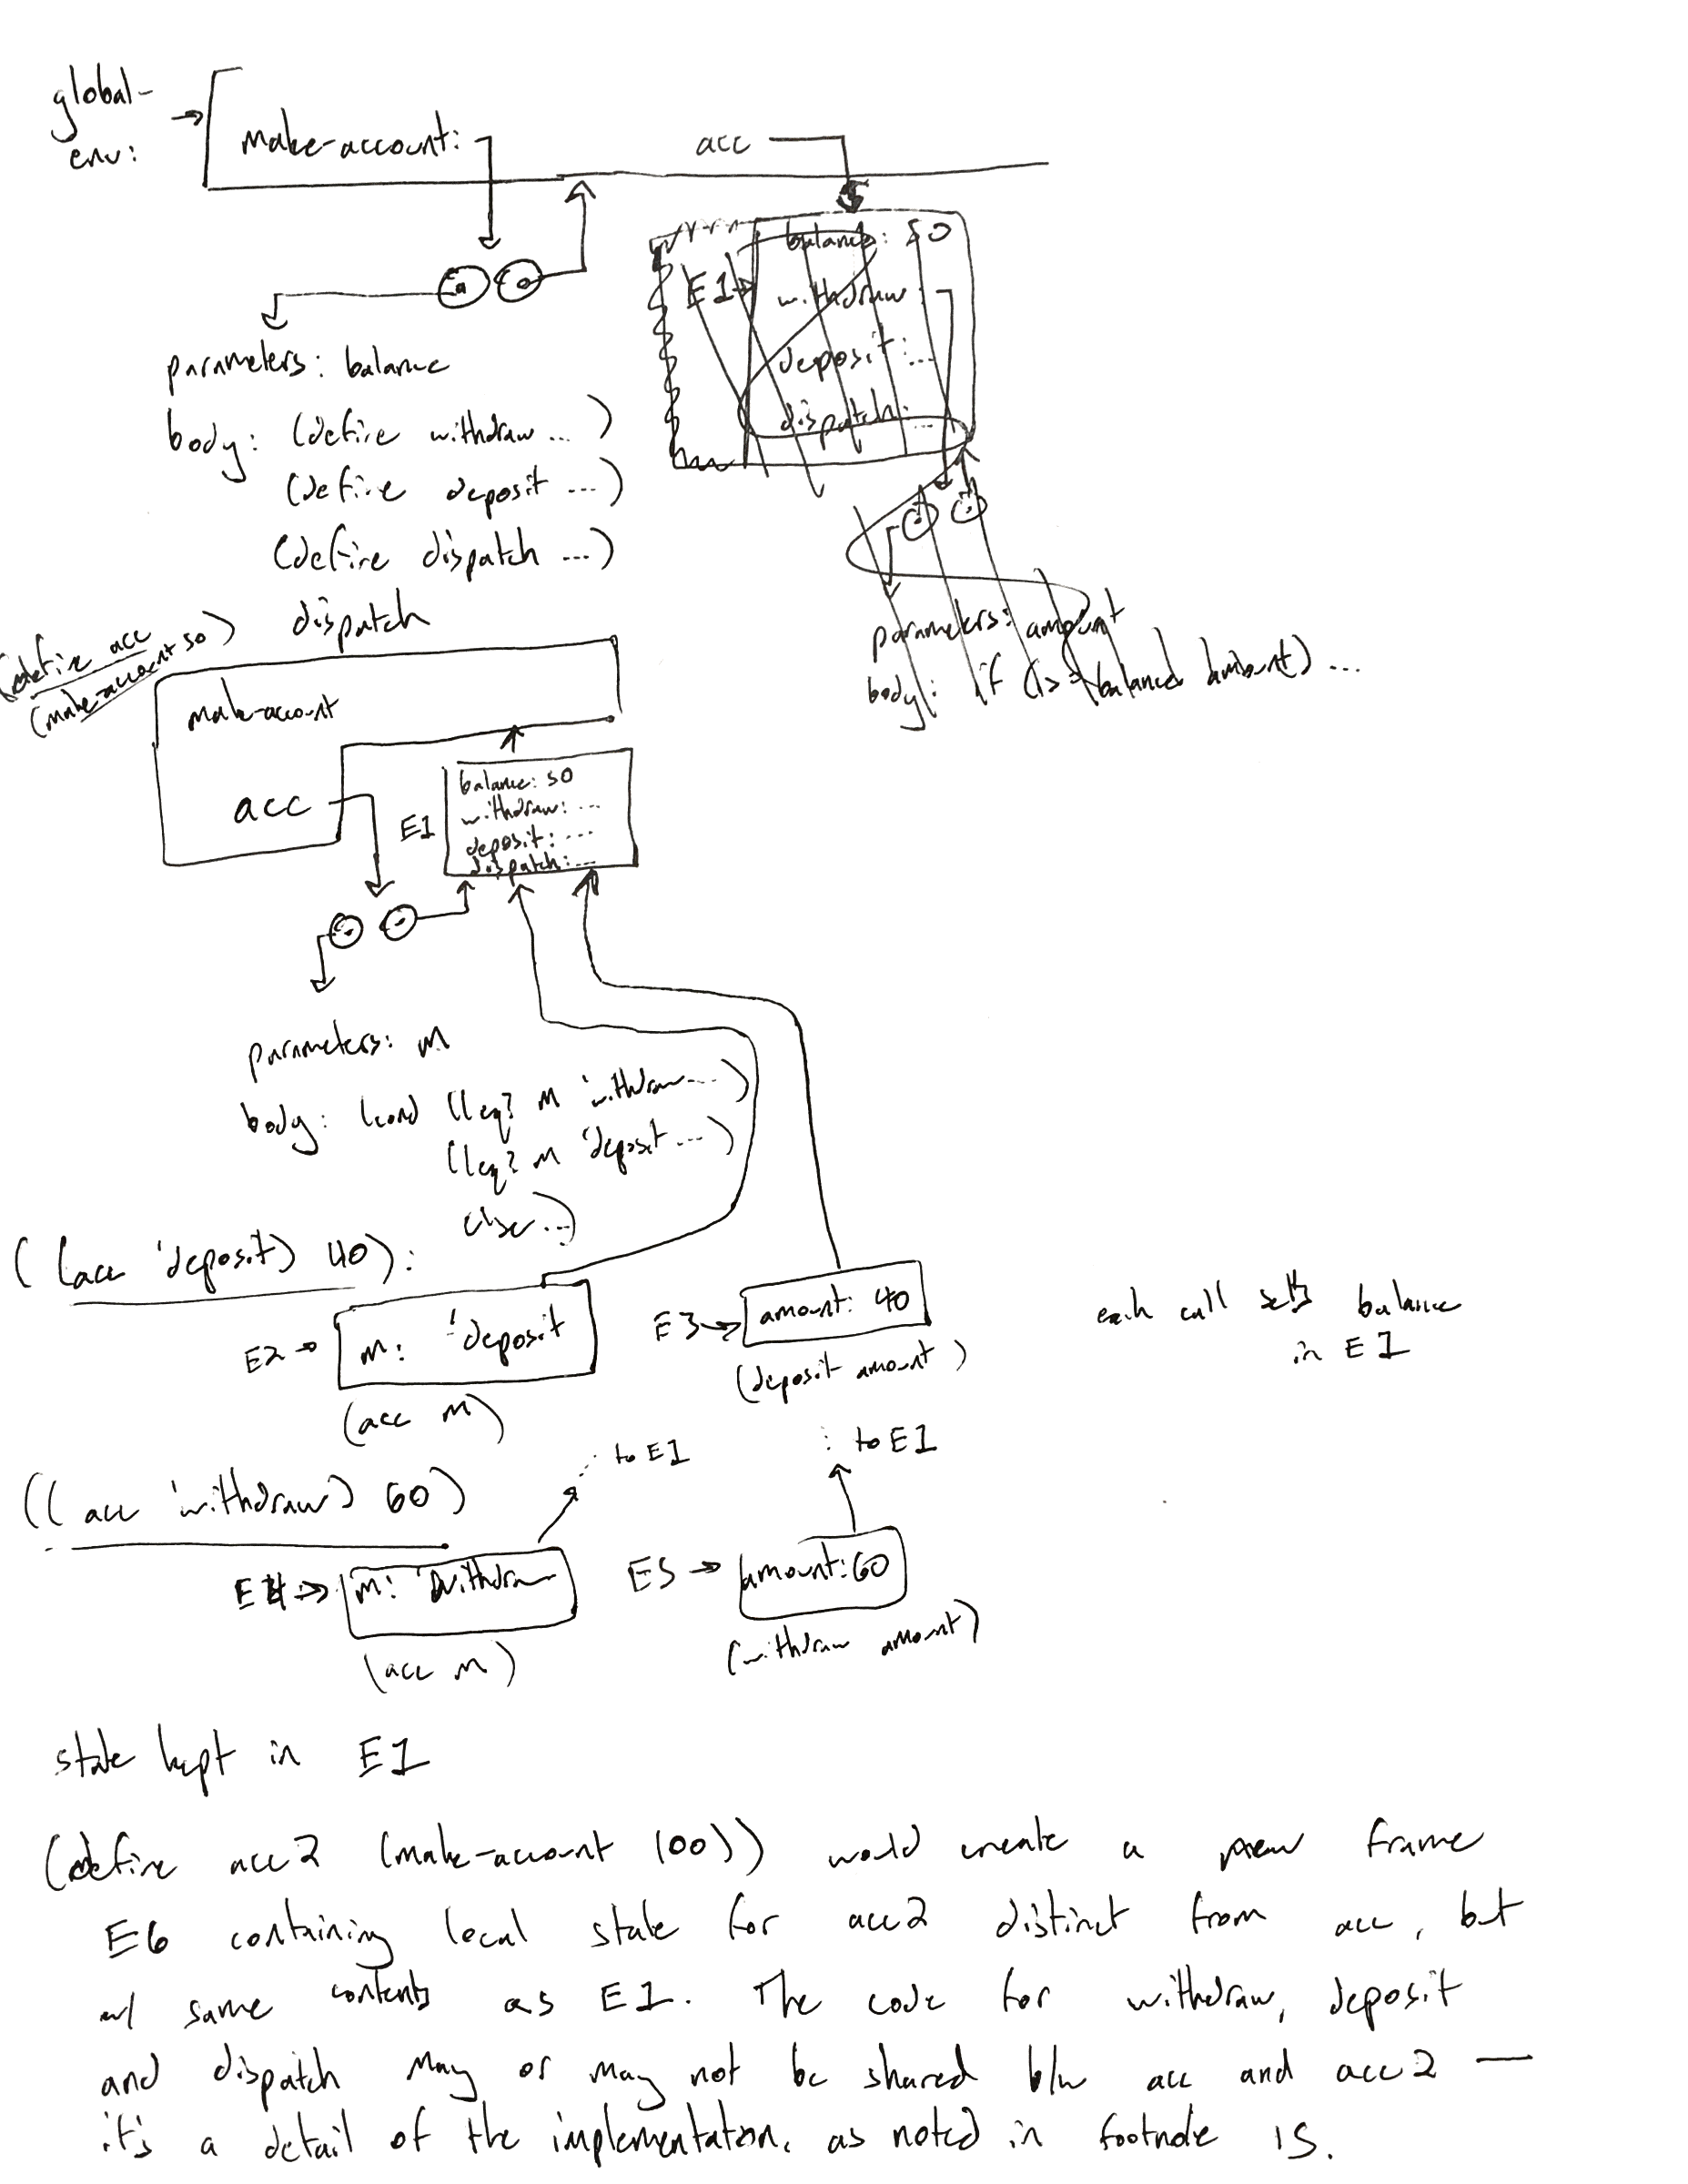 global-
env:
make-account:
acc
parameters: balance
body: (define withdraw ... )
(define deposit ... )
(define dispatch ... )
dispatch
balance: 50
E1
withdraw
deposit: ...
dispatch: ...
parameters: amount
body: if (>= balance amount) ...
(define acc
(make-account 50)
make-account
acc
E1
balance: 50
withdraw: ...
deposit: ...
dispatch: ...
parameters: m
body: (cond ((eq? m 'withdraw ... )
((eq? m 'deposit ... )
else ... )
((acc 'deposit) 40):
E2
m: 'deposit
(acc m)
E3
amount: 40
(deposit amount)
each call sets balance
in E1
((acc 'withdraw) 60)
to E1
to E1
E4
m: 'withdraw
(acc m)
E5
amount: 60
(withdraw amount)
state kept in E1
(define acc2 (make-account 100)) would create a new frame
E6 containing local state for acc2 distinct from acc, but
w/ same contents as E1. The code for withdraw, deposit
and dispatch may or may not be shared b/w acc and acc2 —
it's a detail of the implementation, as noted in footnote 15.